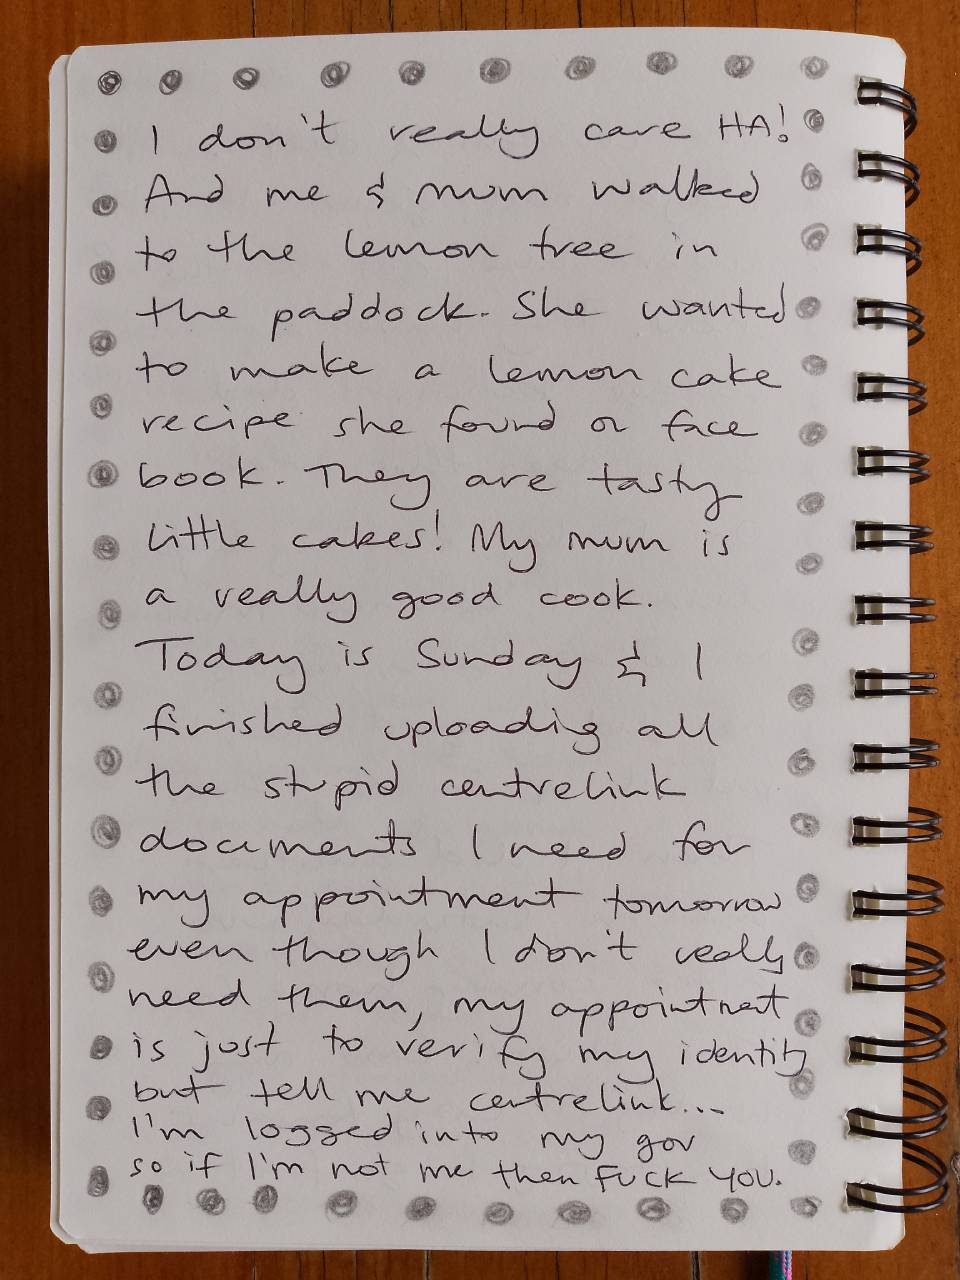 I don't really care HA!
And me & mum walked
to the lemon tree in
the paddock. She wanted
to make a lemon cake
recipe she found on face
book. They are tasty
little cakes! My mum is
a really good cook.
Today is Sunday & I
finished uploading all
the stupid centrelink
documents I need for
my appointment tomorrow
even though I don't really
need them, my appointment
is just to verify my identity
but tell me centrelink...
I'm logged into my gov
so if I'm not me then FUCK YOU.